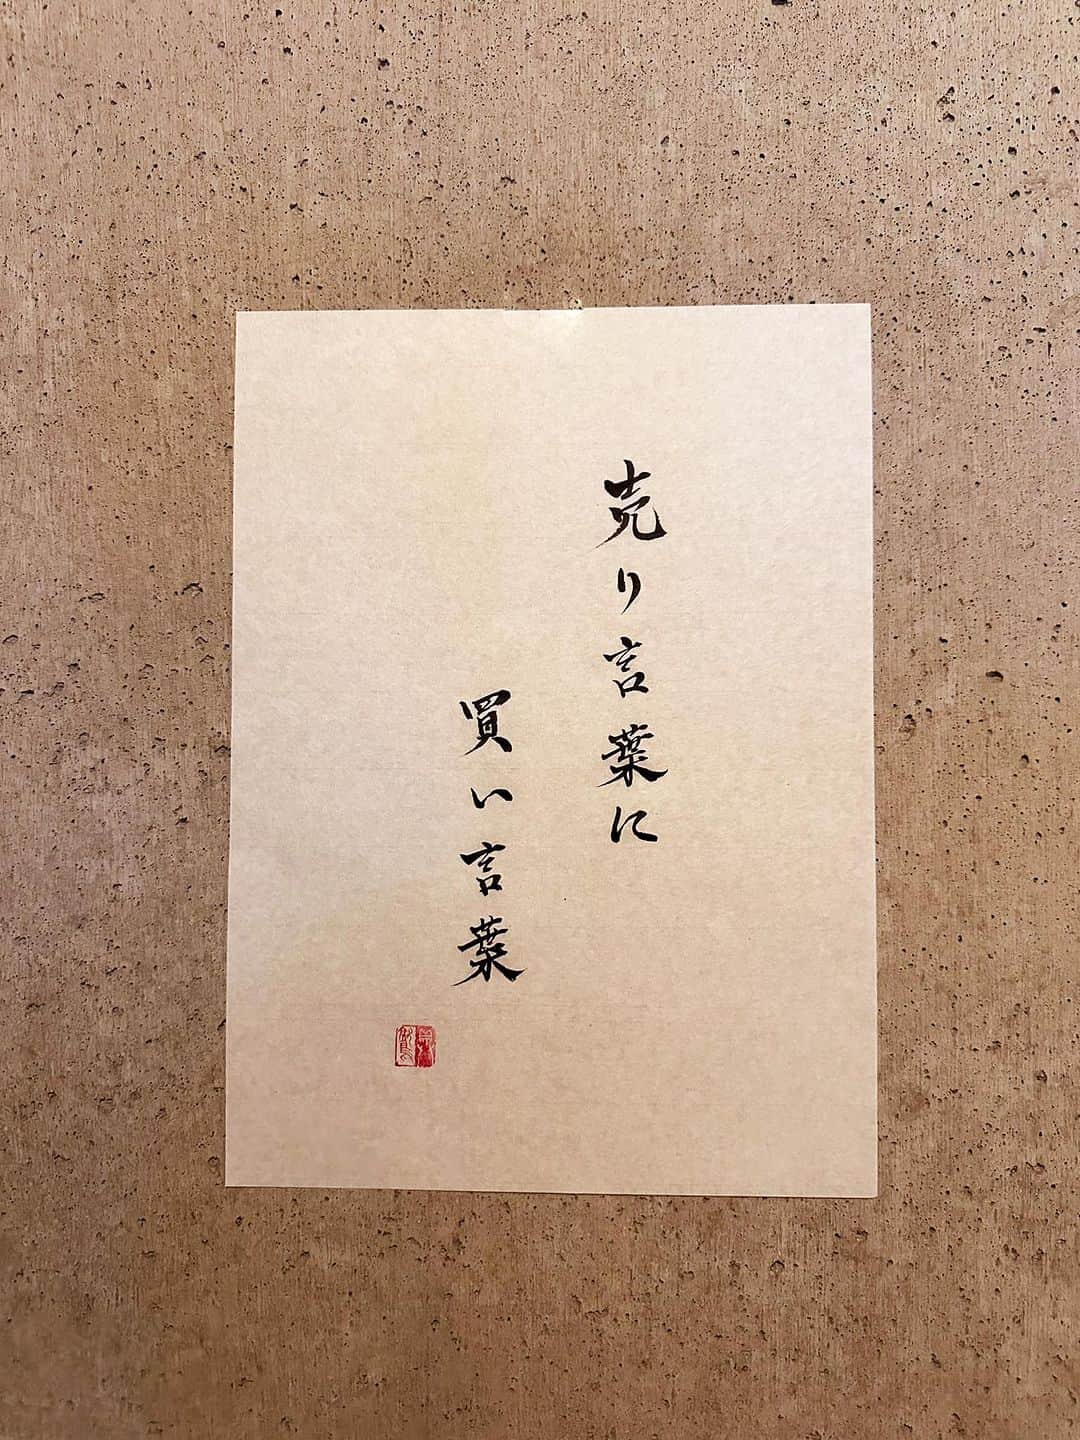 売り言葉に
買い言葉